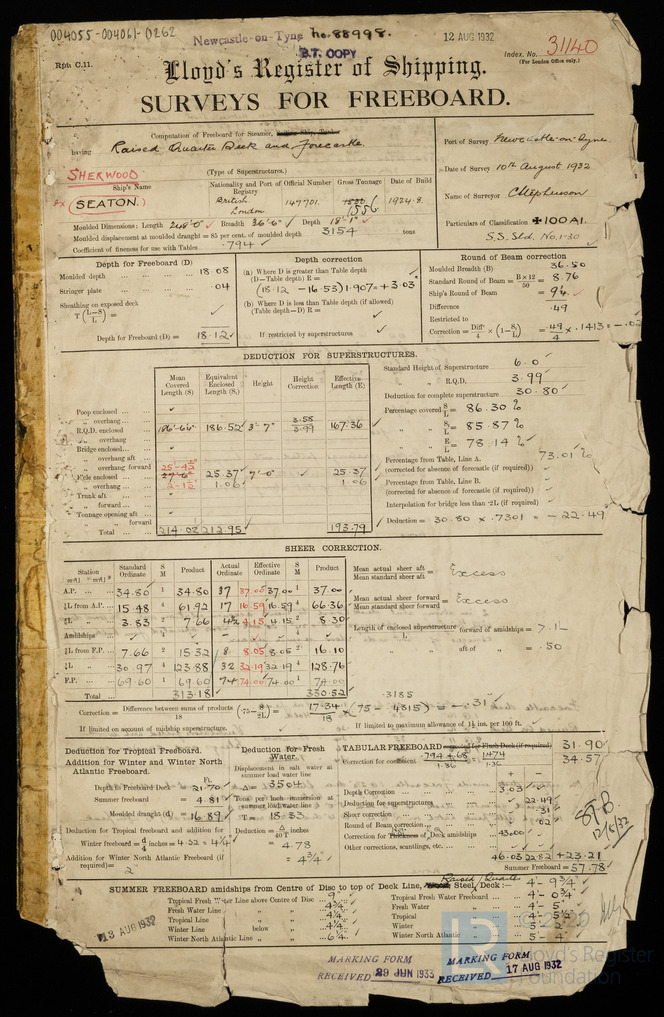 004055-004061-0262
Newcastle-on-Tyne No. 88998.
12 AUG 1932
B.T. COPY
Index. No. 31140
(For London Office only.)
Rpt. C.11.
Lloyd's Register of Shipping.
SURVEYS FOR FREEBOARD.
Computation of Freeboard for Steamer,
having Raised Quarter Deck and Forecastle
(Type of Superstructures.)
SHERWOOD
Ship's Name
Ex SEATON.
Nationality and Port of Registry
British
London
Official Number
147701
Gross Tonnage
1556
Date of Build
1924.8.
Port of Survey Newcastle-on-Tyne
Date of Survey 10th August 1932
Name of Surveyor
Particulars of Classification ✠100A1.
S.S. Sld. No. 1-30
Moulded Dimensions: Length 248'0" Breadth 36'6" Depth 18'1"
Moulded displacement at moulded draught = 85 per cent. of moulded depth 3154 tons
Coefficient of fineness for use with Tables .794
Depth for Freeboard (D)
Moulded depth 18.08
Stringer plate .04
Sheathing on exposed deck
T(L-S/L) =
Depth for Freeboard (D) = 18.12
Depth correction
(a) Where D is greater than Table depth
(D-Table depth) R =
(18.12 - 16.53) 1.907 = +3.03
(b) Where D is less than Table depth (if allowed)
(Table depth-D) R =
If restricted by superstructures
Round of Beam correction
Moulded Breadth (B) 36.50
Standard Round of Beam = B×12/50 = 8.76
Ship's Round of Beam = 9¼
Difference .49
Restricted to
Correction = Diff/4 × (1-S/L) = .49/4 × .1413 = -.02
DEDUCTION FOR SUPERSTRUCTURES.
Mean Covered Length (S) Equivalent Enclosed Length (S₁) Height Height Correction Effective Length (E)
Poop enclosed
" overhang
R.Q.D. enclosed 186'-6" 186.52 3'7" 3.58/3.99 167.36
" overhang
Bridge enclosed
" overhang aft
" overhang forward
F'cle enclosed 25.37 7'0" 25.37
" overhang 1.06 1.06
Trunk aft
" forward
Tonnage opening aft
" forward
Total 214.02 212.95 193.79
Standard Height of Superstructure 6.0
" " R.Q.D. 3.99
Deduction for complete superstructure 30.80
Percentage covered S/L = 86.30%
" " S₁/L = 85.87%
" " E/L = 78.14%
Percentage from Table, Line A. 73.01%
(corrected for absence of forecastle (if required))
Percentage from Table, Line B.
(corrected for absence of forecastle (if required))
Interpolation for bridge less than ·2L (if required)
Deduction = 30.80 × .7301 = -22.49
SHEER CORRECTION.
Station Standard Ordinate S M Product Actual Ordinate Effective Ordinate S M Product
A.P. 34.80 1 34.80 37 37.00 37.00 1 37.00
⅙L from A.P. 15.48 4 61.92 17 16.59 16.59 4 66.36
⅓L " 3.83 2 7.66 4½ 4.15 4.15 2 8.30
Amidships
⅓L from F.P. 7.66 2 15.32 8 8.05 8.05 2 16.10
⅙L " 30.97 4 123.88 32 32.19 32.19 4 128.76
F.P. 69.60 1 69.60 74 74.00 74.00 1 74.00
Total 313.18 330.52
Mean actual sheer aft / Mean standard sheer aft = Excess
Mean actual sheer forward / Mean standard sheer forward = Excess
Length of enclosed superstructure forward of amidships / L
" aft of " = .50
Correction = Difference between sums of products / 18 (·75 - S/2L) = 17.34/18 × (.75 - .4315) = -.31
.3185
If limited on account of midship superstructure.
If limited to maximum allowance of 1½ ins. per 100 ft.
Deduction for Tropical Freeboard.
Addition for Winter and Winter North Atlantic Freeboard.
Ft.
Depth to Freeboard Deck = 21.70
Summer freeboard = 4.81
Moulded draught (d) = 16.89
Deduction for Tropical freeboard and addition for
Winter freeboard = d/4 inches = 4.22 = 4¼"
Addition for Winter North Atlantic Freeboard (if required) = 2"
Deduction for Fresh Water.
Displacement in salt water at summer load water line
Δ = 3504
Tons per inch immersion at summer load water line
T = 18.33
Deduction = Δ/40T inches
= 4.78
= 4¾"
TABULAR FREEBOARD 31.90
Correction for coefficient .794+.68/1.36 1.474/1.36 34.57
+ -
Depth Correction 3.03
Deduction for superstructures 22.49
Sheer correction .31
Round of Beam correction .02
Correction for Thickness of Deck amidships 43.00
Other corrections, scantlings, etc.
46.03 22.82 +23.21
Summer Freeboard = 57.78
12/8/32
SUMMER FREEBOARD amidships from Centre of Disc to top of Deck Line, Raised Quarter Steel Deck:— 4'-9¾"
Tropical Fresh Water Line above Centre of Disc 9"
Fresh Water Line " " 4¾"
Tropical Line " " 4¼"
Winter Line below " 4¼"
Winter North Atlantic Line " " 6¼"
Tropical Fresh Water Freeboard 4'-0¾"
Fresh Water " 4'-5"
Tropical " 4'-5½"
Winter "
Winter North Atlantic "
13 AUG 1932
MARKING FORM
RECEIVED 29 JUN 1933
MARKING FORM
RECEIVED 17 AUG 1932
© 2020
Lloyd's Register
Foundation